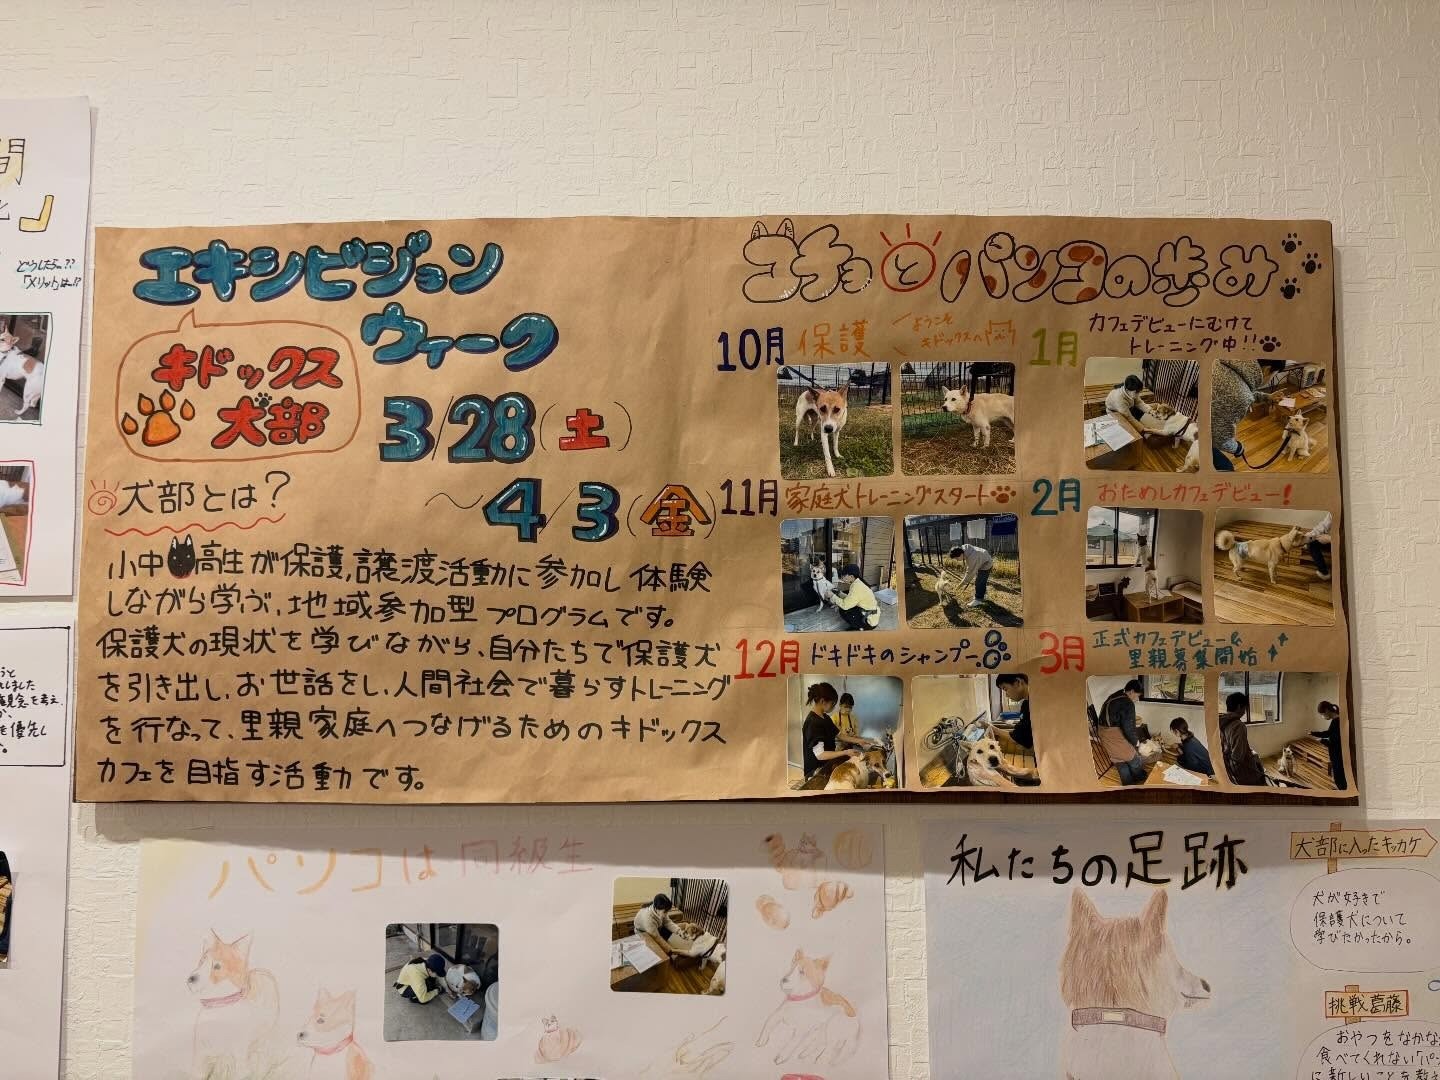 エキシビジョン
ウィーク
キドックス
犬部
3/28(土)
〜4/3(金)
犬部とは?
小中高生が保護,譲渡活動に参加し体験
しながら学ぶ、地域参加型プログラムです。
保護犬の現状を学びながら、自分たちで保護犬
を引き出し、お世話をし、人間社会で暮らすトレーニング
を行なって、里親家庭へつなげるためのキドックス
カフェを目指す活動です。
コチョとパンコの歩み
10月 保護
ようこそ
キドックスへ
11月 家庭犬トレーニングスタート
12月 ドキドキのシャンプー
1月 カフェデビューにむけて
トレーニング中!!
2月 おためしカフェデビュー!
3月 正式カフェデビュー&
里親募集開始
間
どうしたら..??
「メリット」は..!?
を優先し
パンコは同級生
私たちの足跡
犬部に入ったキッカケ
犬が好きで
保護犬について
学びたかったから。
挑戦葛藤
おやつをなかな
食べてくれない「パン
に新しいことを教え